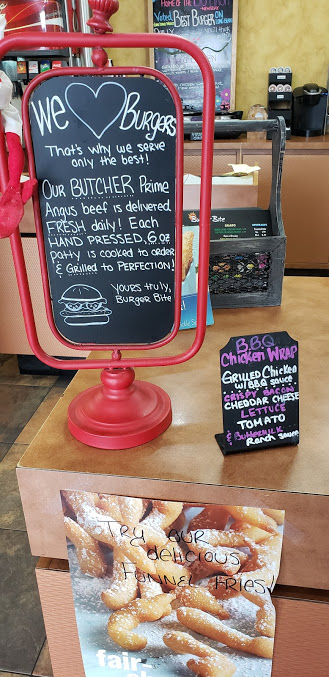 HOME OF THE BIG MAN
NEWSDAY
Voted BEST BURGER ON
LONG ISLAND
We Burgers
That's why we serve
only the best!
Our BUTCHER Prime
Angus beef is delivered
FRESH daily! Each
HAND PRESSED, 6 oz
patty is cooked to order
& Grilled to PERFECTION!
Yours truly,
Burger Bite
Bite
B.B.Q
Chicken WRAP
GRilled Chicken
w/ BBQ sauce
CRISPY BACON
CHEDDAR CHEESE
LETTUCE
TOMATO
& Buttermilk
Ranch sauce
TRY YOUR
delicious
FUNNEL FRIES!
fair-